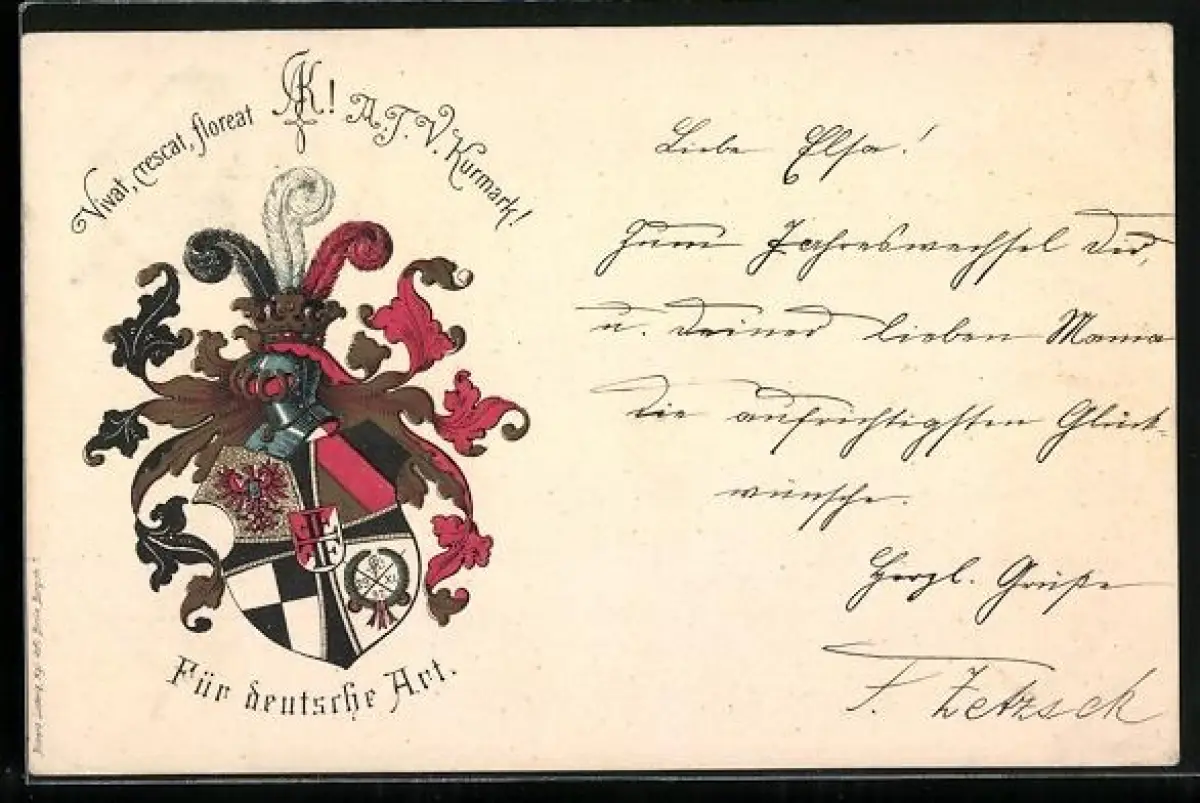 Vivat, crescat, floreat AK! A.T.V. Kurmark!
Für deutsche Art.
Liebe Elsa!
Zum Jahreswechsel Dir,
u. Deiner lieben Mama
die aufrichtigsten Glück-
wünsche.
Herzl. Grüße
F. Zetzsch